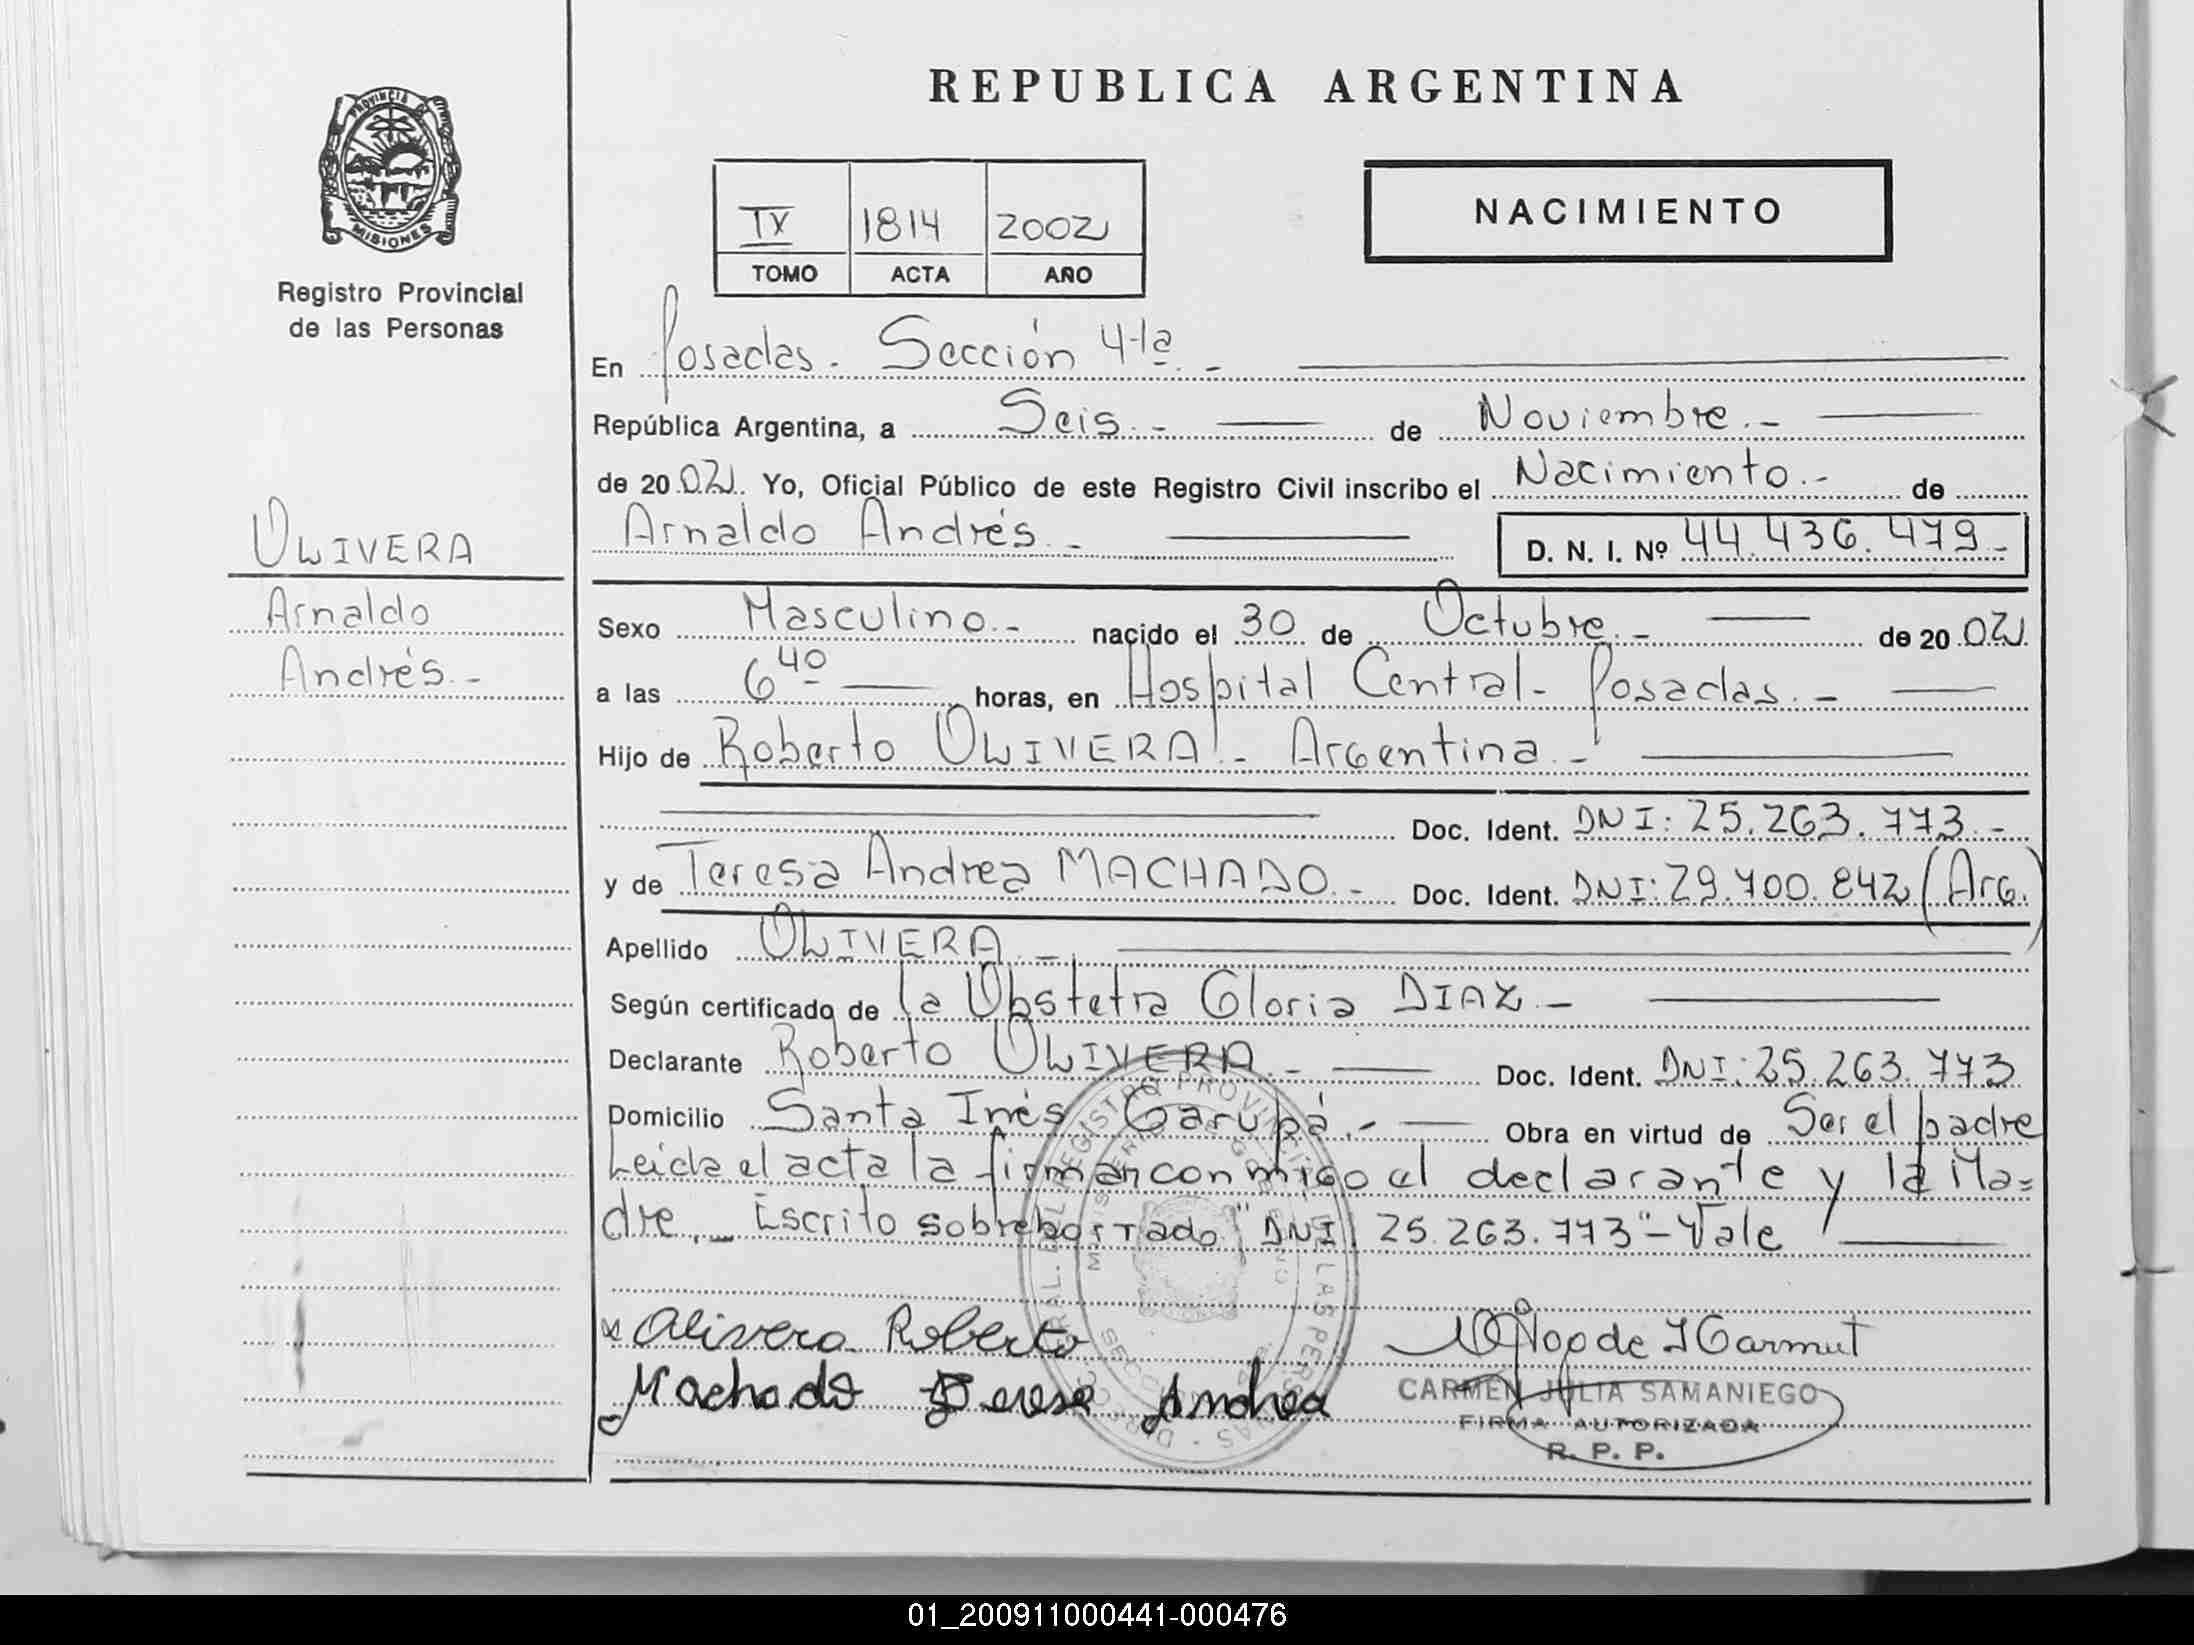 REPUBLICA ARGENTINA
PROVINCIA DE
MISIONES
Registro Provincial
de las Personas
IX 1814 2002
TOMO ACTA AÑO
NACIMIENTO
En Posadas.- Sección 4ta.-
República Argentina, a Seis.- de Noviembre.-
de 2002. Yo, Oficial Público de este Registro Civil inscribo el Nacimiento.- de
Arnaldo Andrés.- D. N. I. Nº 44.436.479.-
OLIVERA
Arnaldo
Andrés.-
Sexo Masculino.- nacido el 30 de Octubre.- de 2002
a las 6 40 horas, en Hospital Central- Posadas.-
Hijo de Roberto OLIVERA.- Argentina.-
Doc. Ident. DNI: 25.263.773.-
y de Teresa Andrea MACHADO.- Doc. Ident. DNI: 29.700.842 (Arg.)
Apellido OLIVERA.-
Según certificado de la Obstetra Gloria DIAZ.-
Declarante Roberto OLIVERA.- Doc. Ident. DNI: 25.263.773
Domicilio Santa Inés Garupá.- Obra en virtud de Ser el padre
Leida el acta la firman conmigo el declarante y la Ma=
dre.- Escrito sobreborrado "DNI 25.263.773"- Vale
Olivera Roberto
Machado Teresa Andrea
CARMEN JULIA SAMANIEGO
FIRMA AUTORIZADA
R. P. P.
01_200911000441-000476